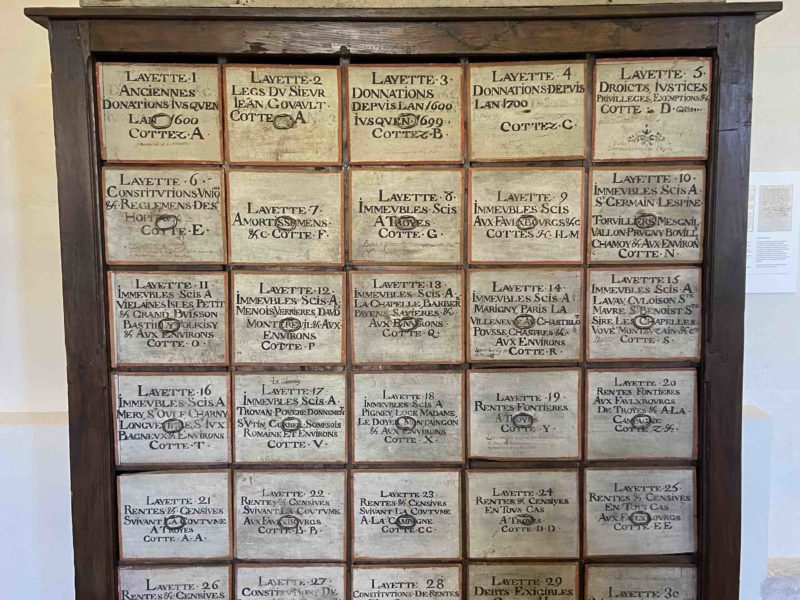 LAYETTE · 1
ANCIENNES
DONATIONS IVSQVEN
LAN 1600
COTTEZ · A
LAYETTE · 2
LEGS DV SIEVR
IEAN GOVAVLT ·
COTTE · A
LAYETTE · 3 ·
DONNATIONS
DEPVIS LAN 1600
IVSQVEN 1699
COTTEZ · B
LAYETTE · 4
DONNATIONS DEPVIS
LAN 1700
COTTEZ · C ·
LAYETTE · 5 ·
DROICTS IVSTICES
PRIVILLEGES EXEMPTIONS &c
COTTE · D ·
LAYETTE · 6 ·
CONSTITVTIONS VNIONS
& REGLEMENS DES
HOPITAUX
COTTE · E ·
LAYETTE · 7 ·
AMORTISSEMENS
&c COTTE · F ·
LAYETTE · 8
IMMEVBLES SCIS
A TROYES
COTTE · G ·
LAYETTE · 9
IMMEVBLES SCIS
AVX FAVXBOVRGS &c
COTTES · H · M
LAYETTE · 10 ·
IMMEVBLES SCIS A
ST GERMAIN LESPINE
TORVILLIERS MESGNIL
VALLON PRVGNY BOVILLY
CHAMOY & AVX ENVIRON
COTTE · N ·
LAYETTE · 11 ·
IMMEVBLES SCIS A
VIELAINES ISLES PETIT
& GRAND BVISSON
& AVX ENVIRONS
COTTE · O ·
LAYETTE · 12 ·
IMMEVBLES SCIS A
MENOIS VERRIERES DAVD
& AVX
ENVIRONS
COTTE · P ·
LAYETTE · 13 ·
IMMEVBLES SCIS A
LA CHAPELLE BARBER
PAYENS SAVIERES
AVX ENVIRONS
COTTE · Q ·
LAYETTE · 14 ·
IMMEVBLES SCIS A
MARIGNY PARIS LA
VILLENEVVE AV CHASTELOT
POVSSE CHASTRES &
AVX ENVIRONS
COTTE · R ·
LAYETTE 15
IMMEVBLES SCIS A
LAVAV CVLOISON STE
MAVRE ST BENOIST STE
SIRE LES CHAPELLES
COTTE · S ·
LAYETTE · 16 ·
IMMEVBLES SCIS A
MERY ST OVLF CHARNY
BAGNEVX & ENVIRONS
COTTE · T ·
LAYETTE · 17 ·
IMMEVBLES SCIS A
ST VTIN CORBEIL SOMPSOIS
ROMAINE ET ENVIRONS
COTTE · V ·
LAYETTE · 18
IMMEVBLES SCIS A
PIGNEY LOGE MADAME
LE DOYER MONTAINGON
& AVX ENVIRONS
COTTE · X ·
LAYETTE · 19 ·
RENTES FONTIERES
A TROYES
COTTE · Y ·
LAYETTE · 20
RENTES FONTIERES
AVX FAVLXBOVRGS
DE TROYES & A LA
CAMPAGNE
COTTE Z &c
LAYETTE · 21
RENTES & CENSIVES
SVIVANT LA COVTVME
A TROYES
COTTE · A A ·
LAYETTE · 22
RENTES & CENSIVES
SVIVANT LA COVTVME
AVX FAVXBOVRGS
COTTE · B B ·
LAYETTE · 23
RENTES & CENSIVES
SVIVANT LA COVTVME
A LA CAMPAGNE
COTTE · C C ·
LAYETTE · 24
RENTES & CENSIVES
EN TOVS CAS
A TROYES
COTTE · D D
LAYETTE · 25
RENTES & CENSIVES
EN TOVS CAS
AVX FAVXBOVRGS
COTTE · E E
LAYETTE · 26
RENTES & CENSIVES
LAYETTE · 27 ·
CONSTITVTIONS DE
LAYETTE · 28
CONSTITVTIONS DE RENTES
LAYETTE · 29
DEBTS EXIGIBLES
LAYETTE · 30